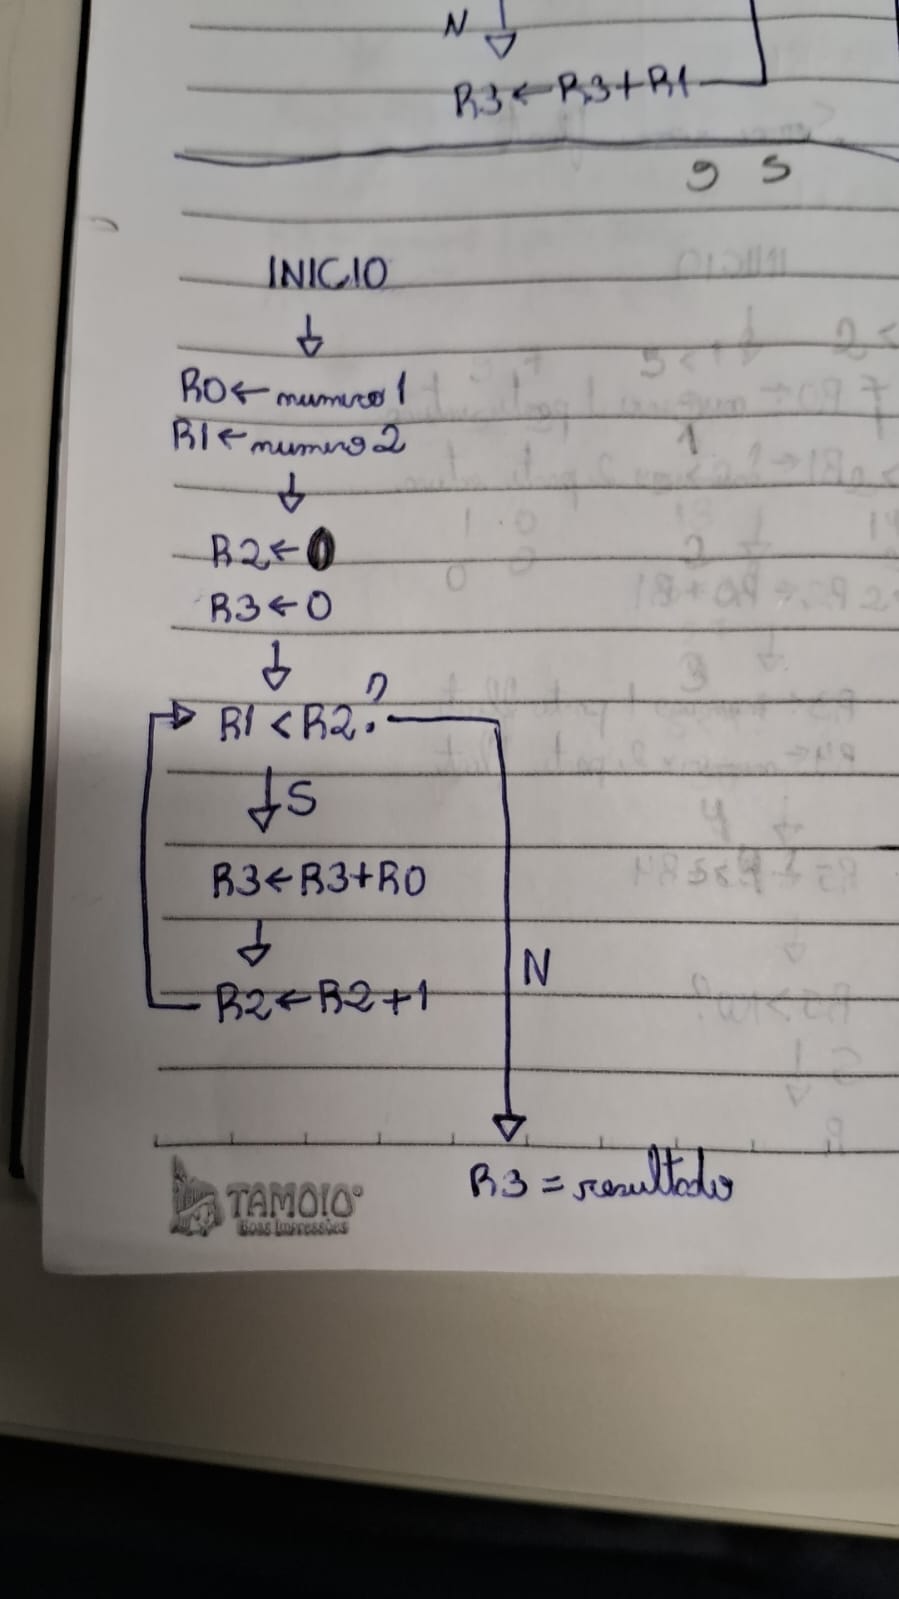 N
R3←R3+R1
9 5
INICIO
R0←numero1
R1←numero2
1
R2←0
2
R3←0
3
R1<R2?
S
4
R3←R3+R0
N
R2←R2+1
R3=resultado
TAMOIO
Boas Impressões